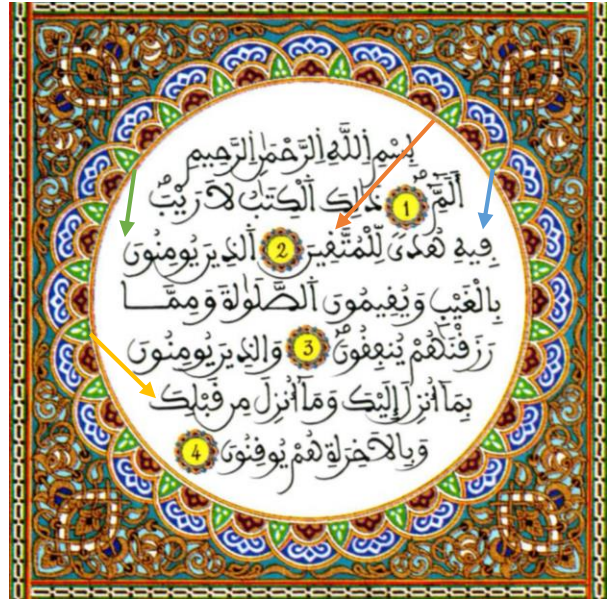 بِسْمِ اِ۬للَّهِ اِ۬لرَّحْمَٰنِ اِ۬لرَّحِيمِ
أَلَٓمِّٓۖ 1 ذَٰلِكَ اَ۬لْكِتَٰبُ لَا رَيْبَۖ
فِيهِ هُدىٗ لِّلْمُتَّقِينَ 2 اَ۬لذِينَ يُومِنُونَ
بِالْغَيْبِ وَيُقِيمُونَ اَ۬لصَّلَوٰةَ وَمِمَّا
رَزَقْنَٰهُمْ يُنفِقُونَۖ 3 وَالذِينَ يُومِنُونَ
بِمَآ أُنزِلَ إِلَيْكَ وَمَآ أُنزِلَ مِن قَبْلِكَ
وَبِالَاخِرَةِ هُمْ يُوقِنُونَۖ 4